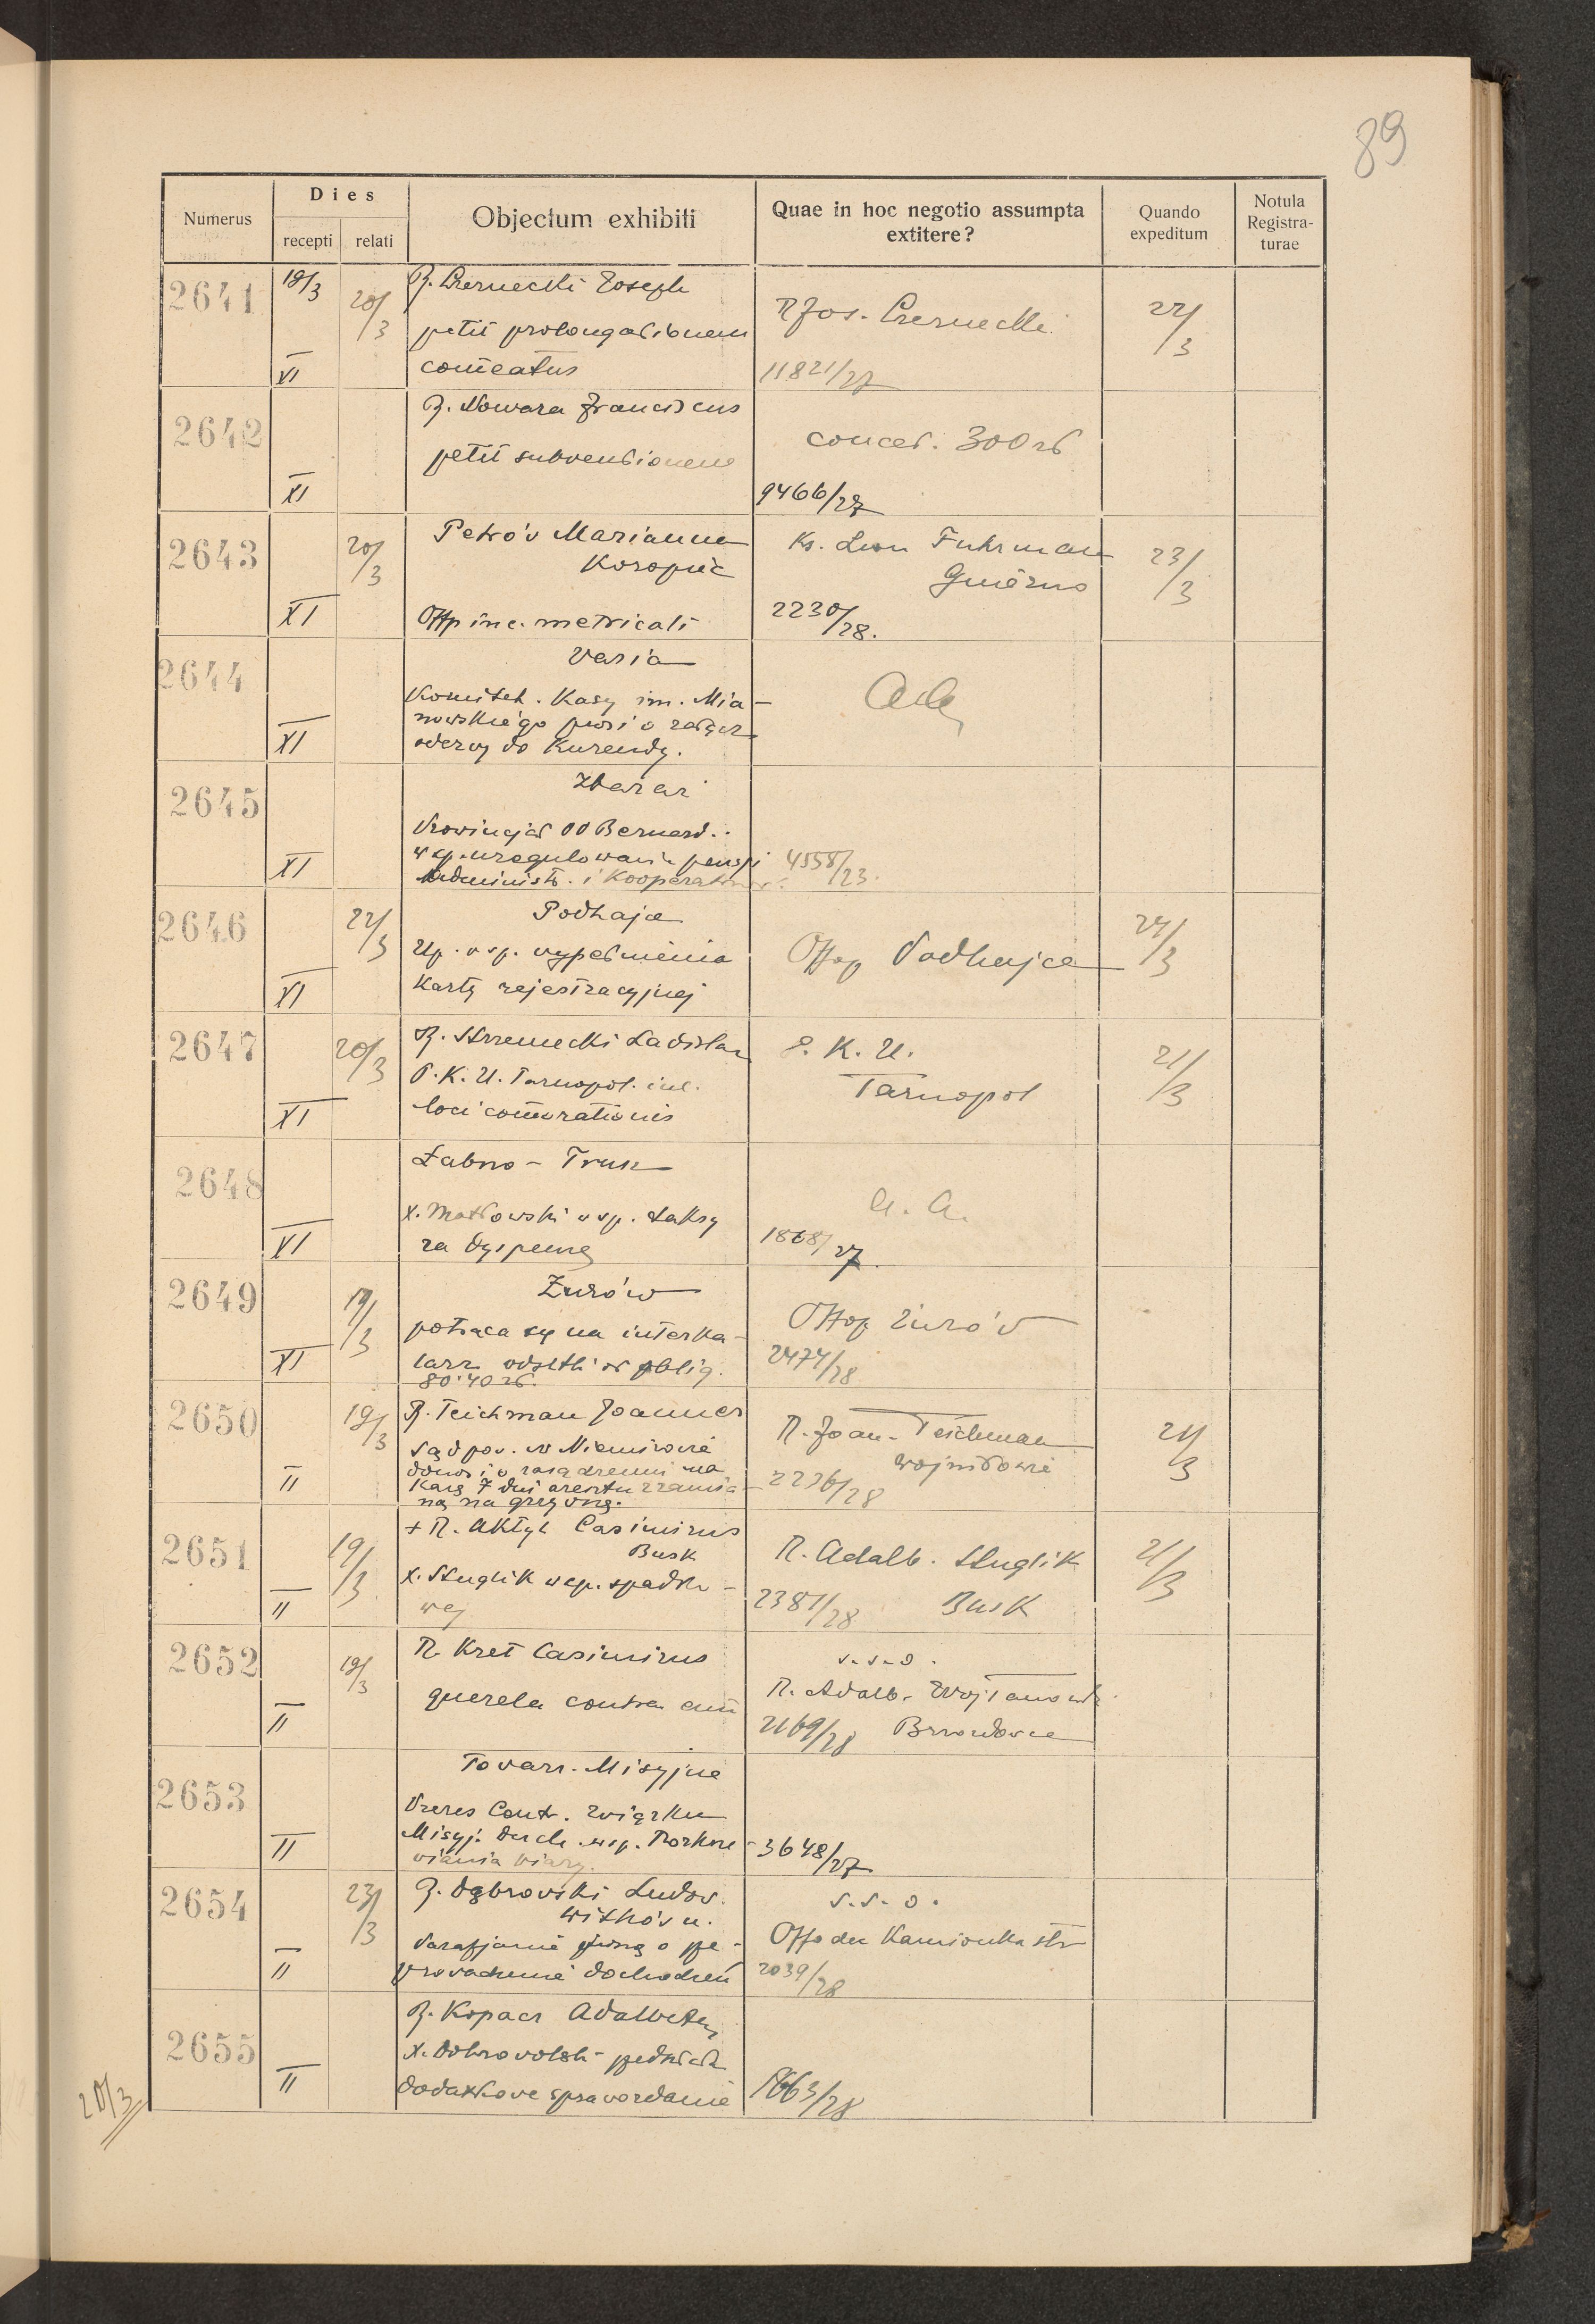 89
Numerus
Dies
recepti relati
Objectum exhibiti
Quae in hoc negotio assumpta
extitere?
Quando
expeditum
Notula
Registra-
turae
2641
18/3
VI
20/3
R. Czernecki Joseph
petit prolongationem
com̄eatus
R Jos. Czernecki
11821/27
22/3
2642
XI
R. Nowara Franciscus
petit subventionem
conces. 300 zł
9466/27
2643
XI
20/3
Petrów Marianna
Koropiec
Offp inc. metricali
Ks. Leon Fuhrman
2230/28.
23/3
2644
XI
Varia
Komitet. Kasy im. Mia-
nowskiego prosi o
odezwy do Kurendy.
2645
XI
Zbaraż
Prowincjał OO Bernard.
wsp. uregulowania pensji
Administr. i Kooperatorów.
4558/23.
2646
XI
22/3
Podhajce
Up. wsp. wypełnienia
Karty rejestracyjnej
Offop Podhajce
24/3
2647
XI
20/3
R. Strzemecki Ladislau
P.K.U. Tarnopol. inc.
loci com̄orationis
P. K. U.
Tarnopol
21/3
2648
XI
Łabno - Trusz
x. Matkowski wsp. taksy
za dyspensę
a. a.
1868/27.
2649
XI
19/3
Żurów
potrąca się na interka-
larz odsetki od oblig.
80.40 zł.
Offop Żurów
2474/28
2650
II
19/3
R. Teichman Joannes
Sąd pow. w Niemirowie
donosi o zasądzeniu na
Karę 7 dni aresztu zamie-
ną na grzywnę.
R. Joan. Teichman
2236/28
21/3
2651
II
19/3
+ R. Aktyl Casimirus
Busk
x. Stuglik wsp. spadko-
wej
R. Adalb. Stuglik
2381/28 Busk
21/3
2652
II
19/3
R. Kret Casimirus
querela contra eum̄
s.s.o.
R. Adalb. Wojtanowski
2169/28 Brzozdowce
2653
II
Towarz. Misyjne
Prezes Centr. Związku
Misyj. Duch. wsp. Rozkrze-
wiania wiary.
3648/27
2654
II
23/3
R. Dąbrowski Ludov.
Witków n.
Parafjanie proszą o prze-
prowadzenie dochodzeń
s.s.o.
Offo dec Kamionka str
2039/28
2655
II
R. Kopacz Adalbertus
x. Dobrowolski przedkłada
dodatkowe sprawozdanie
1663/28
20/3